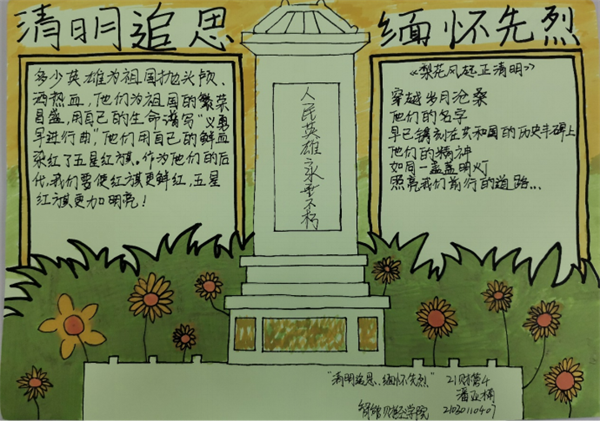 清明追思
缅怀先烈
多少英雄为祖国抛头颅、
洒热血，他们为祖国的繁荣
昌盛，用自己的生命谱写"义勇
军进行曲"，他们用自己的鲜血
染红了五星红旗。作为他们的后
代，我们要使红旗更鲜红，五星
红旗更加明亮！
人民英雄永垂不朽
《梨花风起正清明》
穿越岁月沧桑
他们的名字
早已镌刻在共和国的历史丰碑上
他们的精神
如同一盏盏明灯
照亮我们前行的道路...
"清明追思、缅怀先烈"
21财管4
财经学院
2103110407